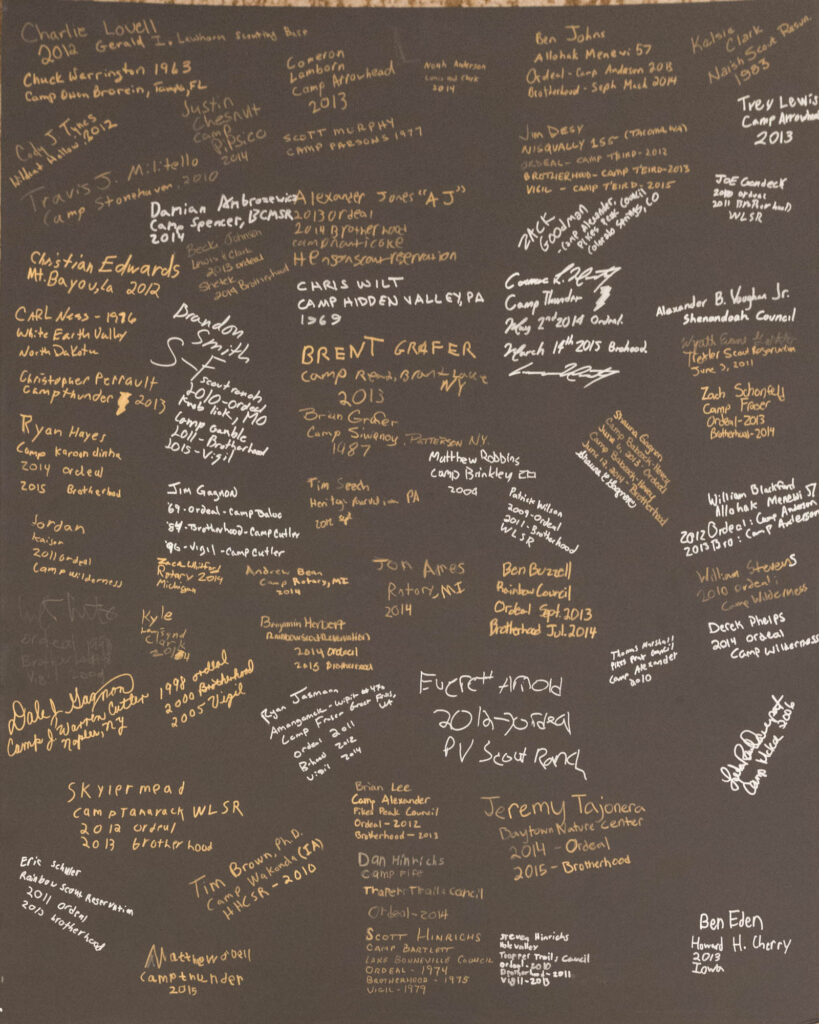 Charlie Lovell
2012 Gerald I. Lawhorn Scouting Base
Chuck Warrington 1963
Camp Owen Brorein, Tampa, FL
Cody J. Tynes
2012
Justin
Chesnut
Camp
Pipsico
2014
Travis J. Militello
Camp Stonehaven 2010
Cameron
Lamborn
Camp Arrowhead
2013
Noah Anderson
Lewis and Clark
2014
SCOTT MURPHY
CAMP PARSONS 1977
Ben Johns
Allohak Menewi 57
Ordeal - Camp Anderson 2013
Brotherhood - Seph Mack 2014
Kelsie
Clark
Naish Scout Reserv.
1983
Trey Lewis
Camp Arrowhead
2013
Jim Desy
NISQUALLY 155 (TACOMA, WA)
ORDEAL - CAMP TBIRD - 2012
BROTHERHOOD - CAMP TBIRD - 2013
VIGIL - CAMP TBIRD - 2015
JOE
2010 ordeal
2011 (Brotherhood)
WLSR
Damian Ambrosewicz
Camp Spencer, BCMSR
2014
Alexander Jones "AJ"
2013 ordeal
2014 Brotherhood
camp nanticoke
Henson scout reservation
ZACK
GOODMAN
- Camp Alexander,
Pikes Peak Council
Colorado Springs, CO
Beck Johnson
Lewis & Clark
2013 ordeal
2014 Brotherhood
Christian Edwards
Mt. Bayou, La 2012
CHRIS WILT
CAMP HIDDEN VALLEY, PA
1969
Camp Thunder
May 2nd 2014 Ordeal.
March 14th 2015 Brohood.
Alexander B. Vaughan Jr.
Shenandoah Council
CARL Ness - 1976
White Earth Valley
North Dakota
Brandon
Smith
S-F
scout ranch
2010 - ordeal
Knob lick, MO
Camp Gamble
2011 - Brotherhood
2015 - Vigil
BRENT GRAFER
Camp Read, Brant Lake
NY
2013
Trexler Scout Reservation
June 3, 2011
Christopher Perrault
Camp thunder 2013
Zach Schonfeld
Camp Fraser
Ordeal - 2013
Brotherhood - 2014
Brian Grafer
Camp Siwanoy PATTERSON N.Y.
1987
Ryan Hayes
Camp Karoondinha
2014 ordeal
2015 Brotherhood
Matthew Robbins
Camp Brinkley
2004
Jim Gagnon
'69 - Ordeal - Camp
'84 - Brotherhood - Camp Cutler
'96 - Vigil - Camp Cutler
Tim Seech
Heritage Reservation PA
Patrick Wilson
2009 - Ordeal
2011 - Brotherhood
WLSR
William Blackford
Allohak Menewi 57
2012 Ordeal: Camp Anderson
2013 Bro: Camp Anderson
Jordan
Kaiser
2011 ordeal
Camp wilderness
Rotary 2014
Michigan
Andrew Bean
Camp Rotary, MI
2014
Jon Ames
Rotary, MI
2014
Ben Buzzell
Rainbow Council
Ordeal Sept. 2013
Brotherhood Jul. 2014
William Stevens
2010 ordeal:
Camp Wilderness
Kyle
Benjamin Herbert
Rainbow Scout Reservation
2014 Ordeal
2015 Brotherhood
Derek Phelps
2014 ordeal
Camp Wilderness
Thomas Marshall
Pikes Peak Council
Camp Alexander
2010
Dale J. Gagnon
Camp J. Warren Cutler
Naples, NY
1998 ordeal
2000 Brotherhood
2005 Vigil
Ryan
Camp Fraser Great Falls, VA
Ordeal 2011
B-hood 2012
Vigil 2014
Everett Arnold
2012 - ordeal
PV Scout Ranch
Camp 2006
Skyler mead
Camp Tamarack WLSR
2012 ordeal
2013 brotherhood
Brian Lee
Camp Alexander
Pikes Peak Council
Ordeal - 2012
Brotherhood - 2013
Jeremy Tajonera
Baytown Nature Center
2014 - Ordeal
2015 - Brotherhood
Eric Schuler
Rainbow Scout Reservation
2011 Ordeal
2013 brotherhood
Tim Brown, Ph.D.
Camp Wakonda (IA)
HHCSR - 2010
Dan Hinrichs
Camp Fife
Trails Council
Ordeal - 2014
Matthew odell
Camp thunder
2015
SCOTT HINRICHS
CAMP BARTLETT
LAKE BONNEVILLE COUNCIL
ORDEAL - 1974
BROTHERHOOD - 1975
VIGIL - 1979
Steven Hinrichs
Hole valley
Trapper Trails Council
Ordeal - 2010
Brotherhood - 2011
Vigil - 2013
Ben Eden
Howard H. Cherry
2013
Iowa